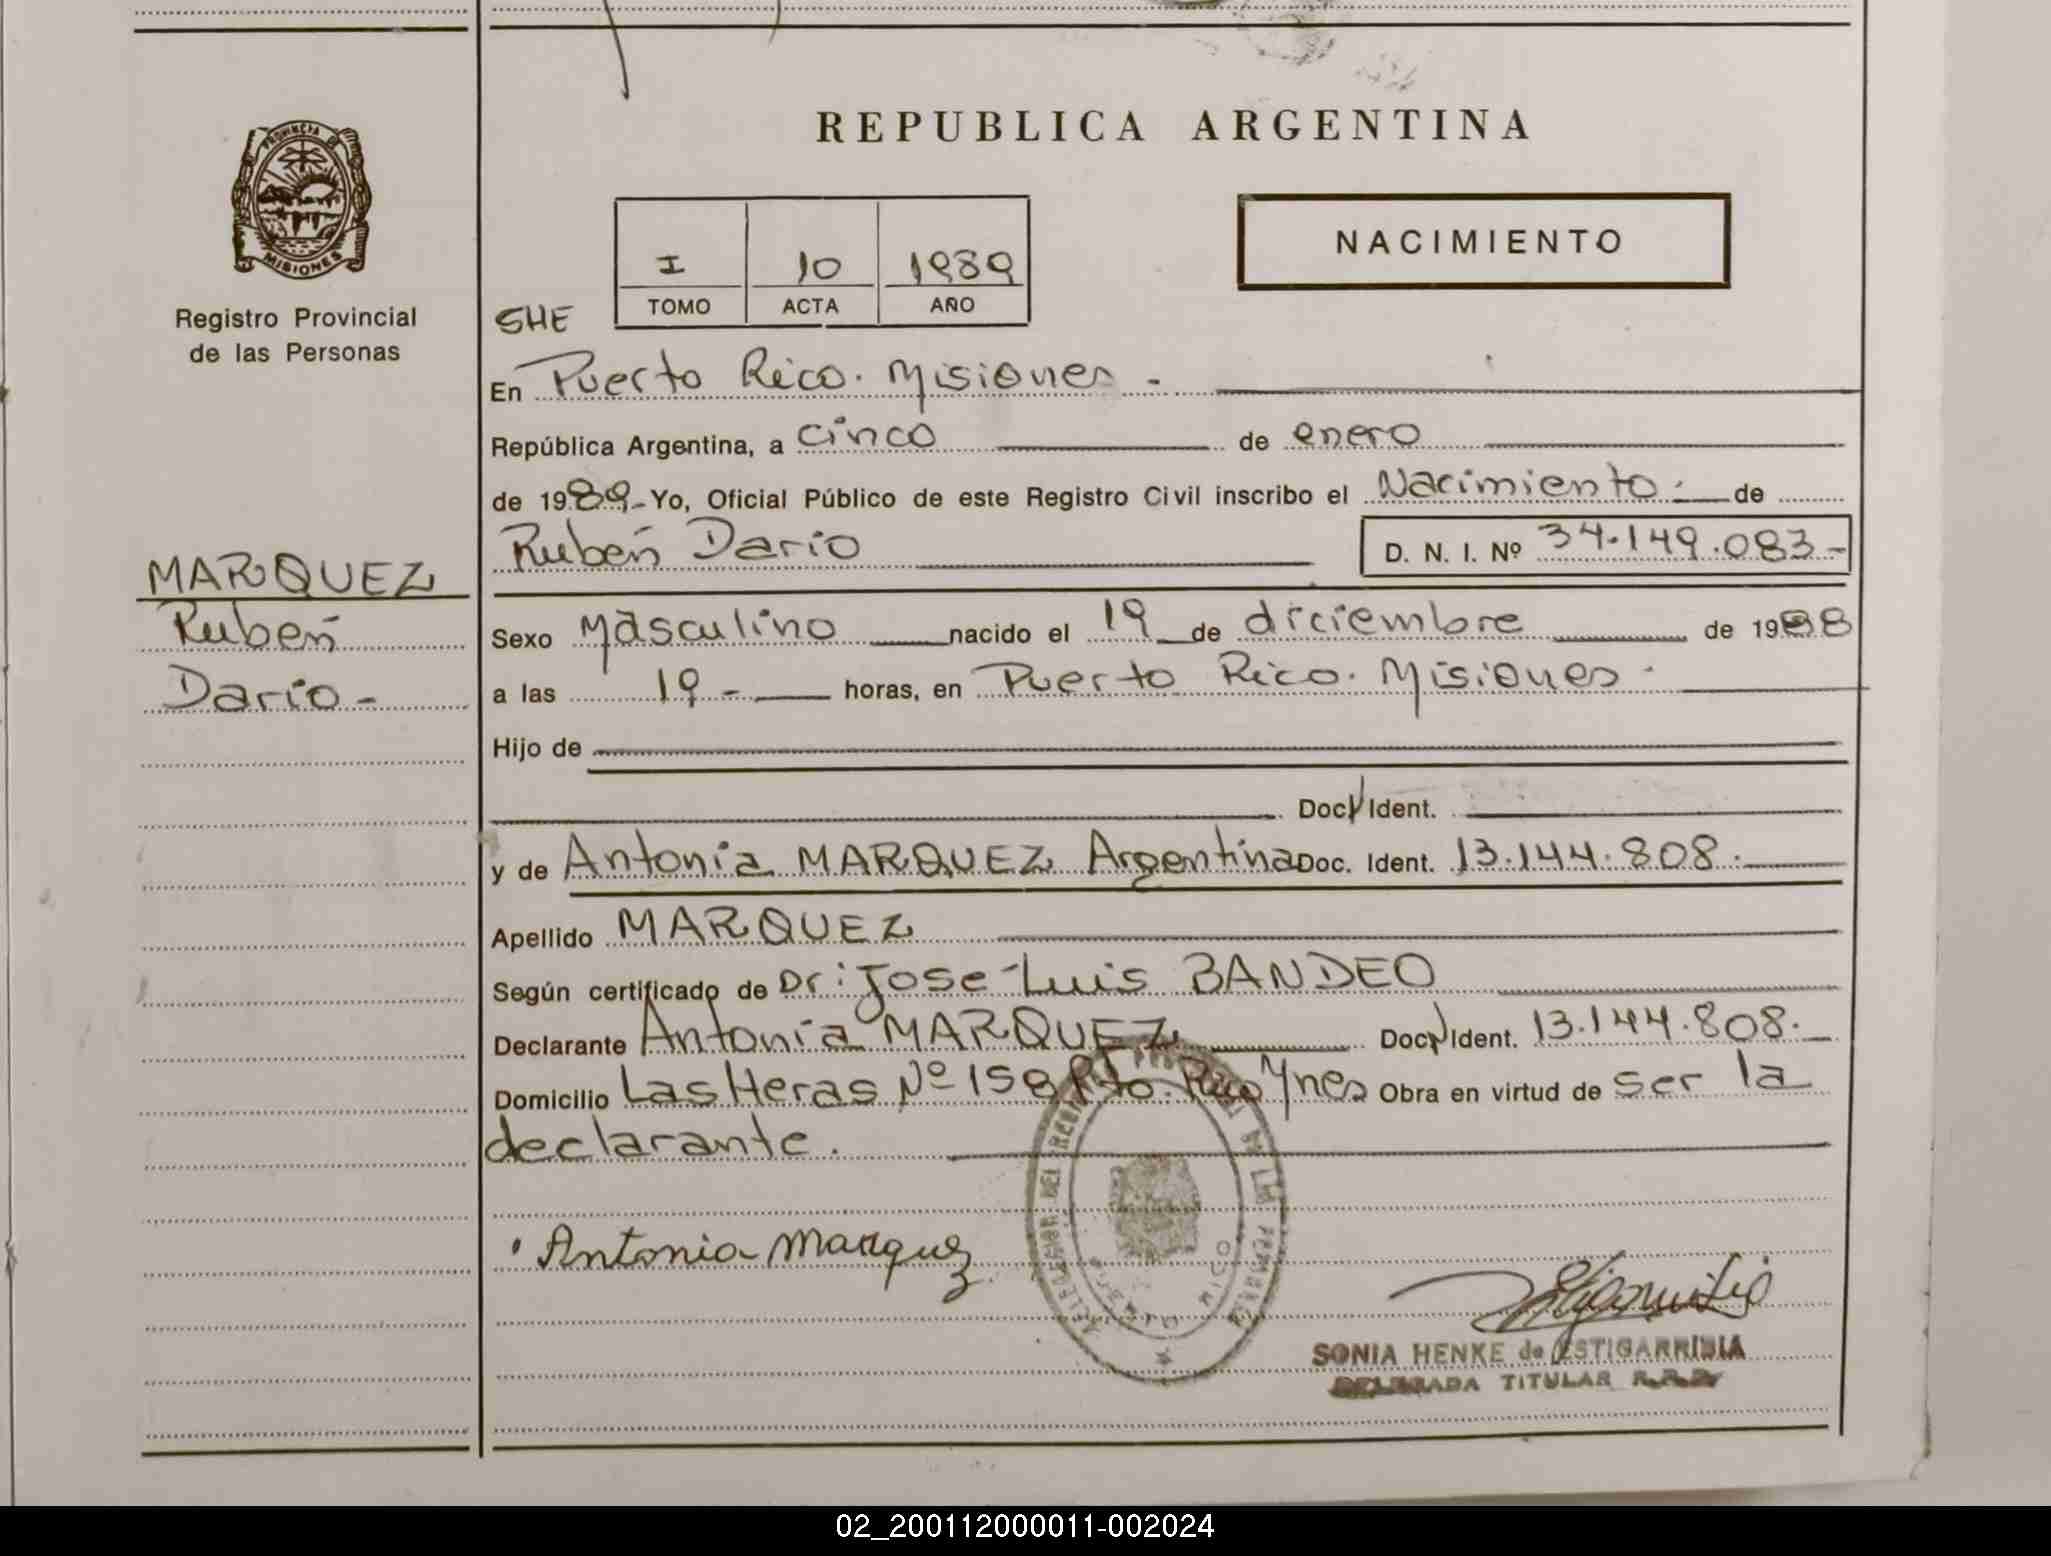 REPUBLICA ARGENTINA
PROVINCIA
MISIONES
Registro Provincial
de las Personas
NACIMIENTO
I 10 1989
TOMO ACTA AÑO
SHE
En Puerto Rico. Misiones -
República Argentina, a cinco de enero
de 1989- Yo, Oficial Público de este Registro Civil inscribo el Nacimiento. de
Rubén Dario D. N. I. Nº 34.149.083-
MARQUEZ
Rubén
Darío-
Sexo Masculino nacido el 19 de diciembre de 1988
a las 19 - horas, en Puerto Rico. Misiones.
Hijo de
Doc. Ident.
y de Antonia MARQUEZ Argentina Doc. Ident. 13.144.808.
Apellido MARQUEZ
Según certificado de Dr: Jose Luis BANDEO
Declarante Antonia MARQUEZ Doc. Ident. 13.144.808.
Domicilio Las Heras Nº 158 Pto. Rico Ynes Obra en virtud de ser la
declarante.
Antonia Marquez
SONIA HENKE de ESTIGARRIBIA
DELEGADA TITULAR R.P.P.
02_200112000011-002024